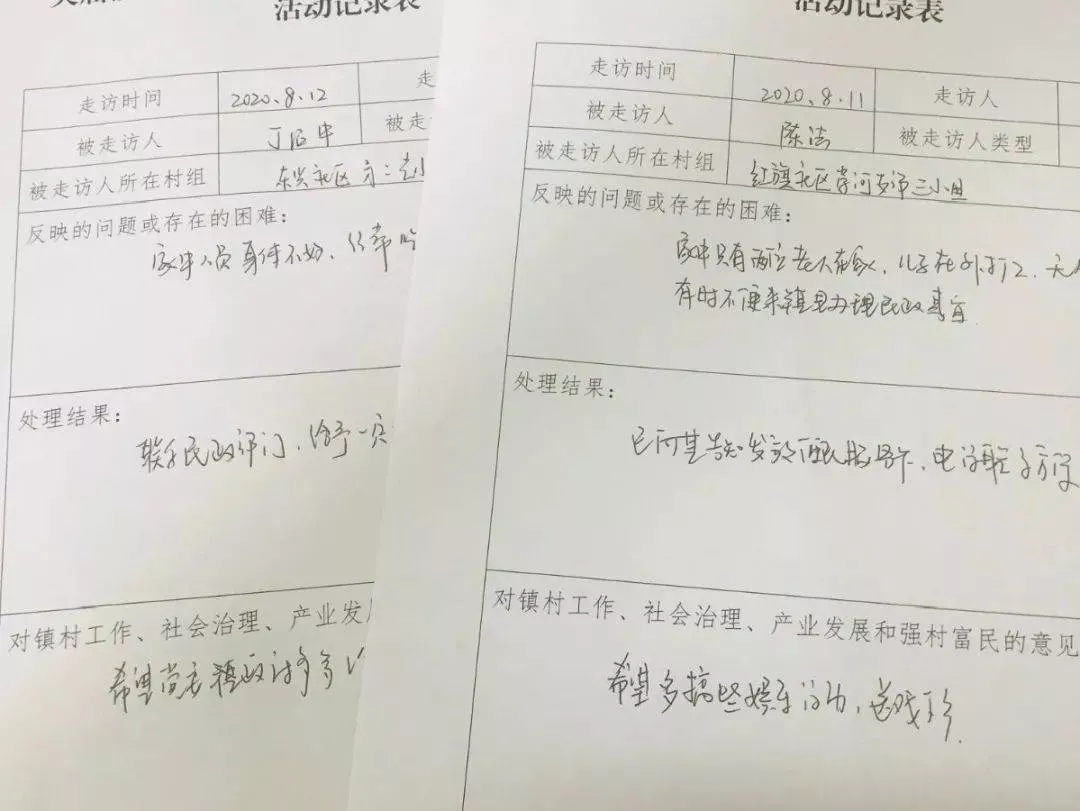 活动记录表
走访时间 2020.8.12 走
被走访人 丁后申 被走
被走访人所在村组 东兴社区
反映的问题或存在的困难：
家中人员身体不好、
处理结果：
联系民政部门，给予一
对镇村工作、社会治理、产业发
希望党委镇政府多
活动记录表
走访时间 2020.8.11 走访人
被走访人 陈洁 被走访人类型
被走访人所在村组 红旗社区 三小组
反映的问题或存在的困难：
家中只有两位老人在家，儿子在外打工，无
有时不便来镇里办理民政事宜
处理结果：
已向其告知发放便民服务卡，电话联系方
对镇村工作、社会治理、产业发展和强村富民的意见
希望多搞些娱乐活动，送戏